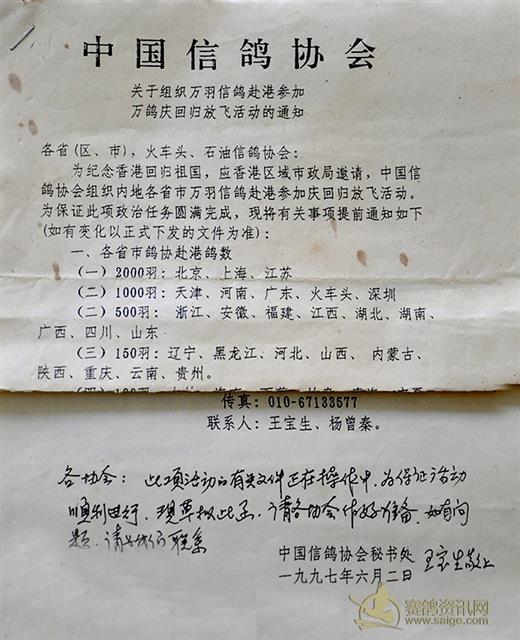 中国信鸽协会
关于组织万羽信鸽赴港参加
万鸽庆回归放飞活动的通知
各省(区、市),火车头、石油信鸽协会:
为纪念香港回归祖国,应香港区域市政局邀请,中国信
鸽协会组织内地各省市万羽信鸽赴港参加庆回归放飞活动。
为保证此项政治任务圆满完成,现将有关事项提前通知如下
(如有变化以正式下发的文件为准):
一、各省市鸽协赴港鸽数
(一)2000羽:北京、上海、江苏
(二)1000羽:天津、河南、广东、火车头、深圳
(二)500羽: 浙江、安徽、福建、江西、湖北、湖南、
广西、四川、山东
(三)150羽:辽宁、黑龙江、河北、山西、 内蒙古、
陕西、重庆、云南、贵州。
传真:010-67133577
联系人:王宝生、杨曾秦。
各协会:此项活动的有关文件正在操作中,为保证活动
顺利进行,现草拟此函,请各协会作好准备,如有问
题,请与我们联系
中国信鸽协会秘书处 王宝生敬上
一九九七年六月二日
赛鸽资讯网
www.saige.com